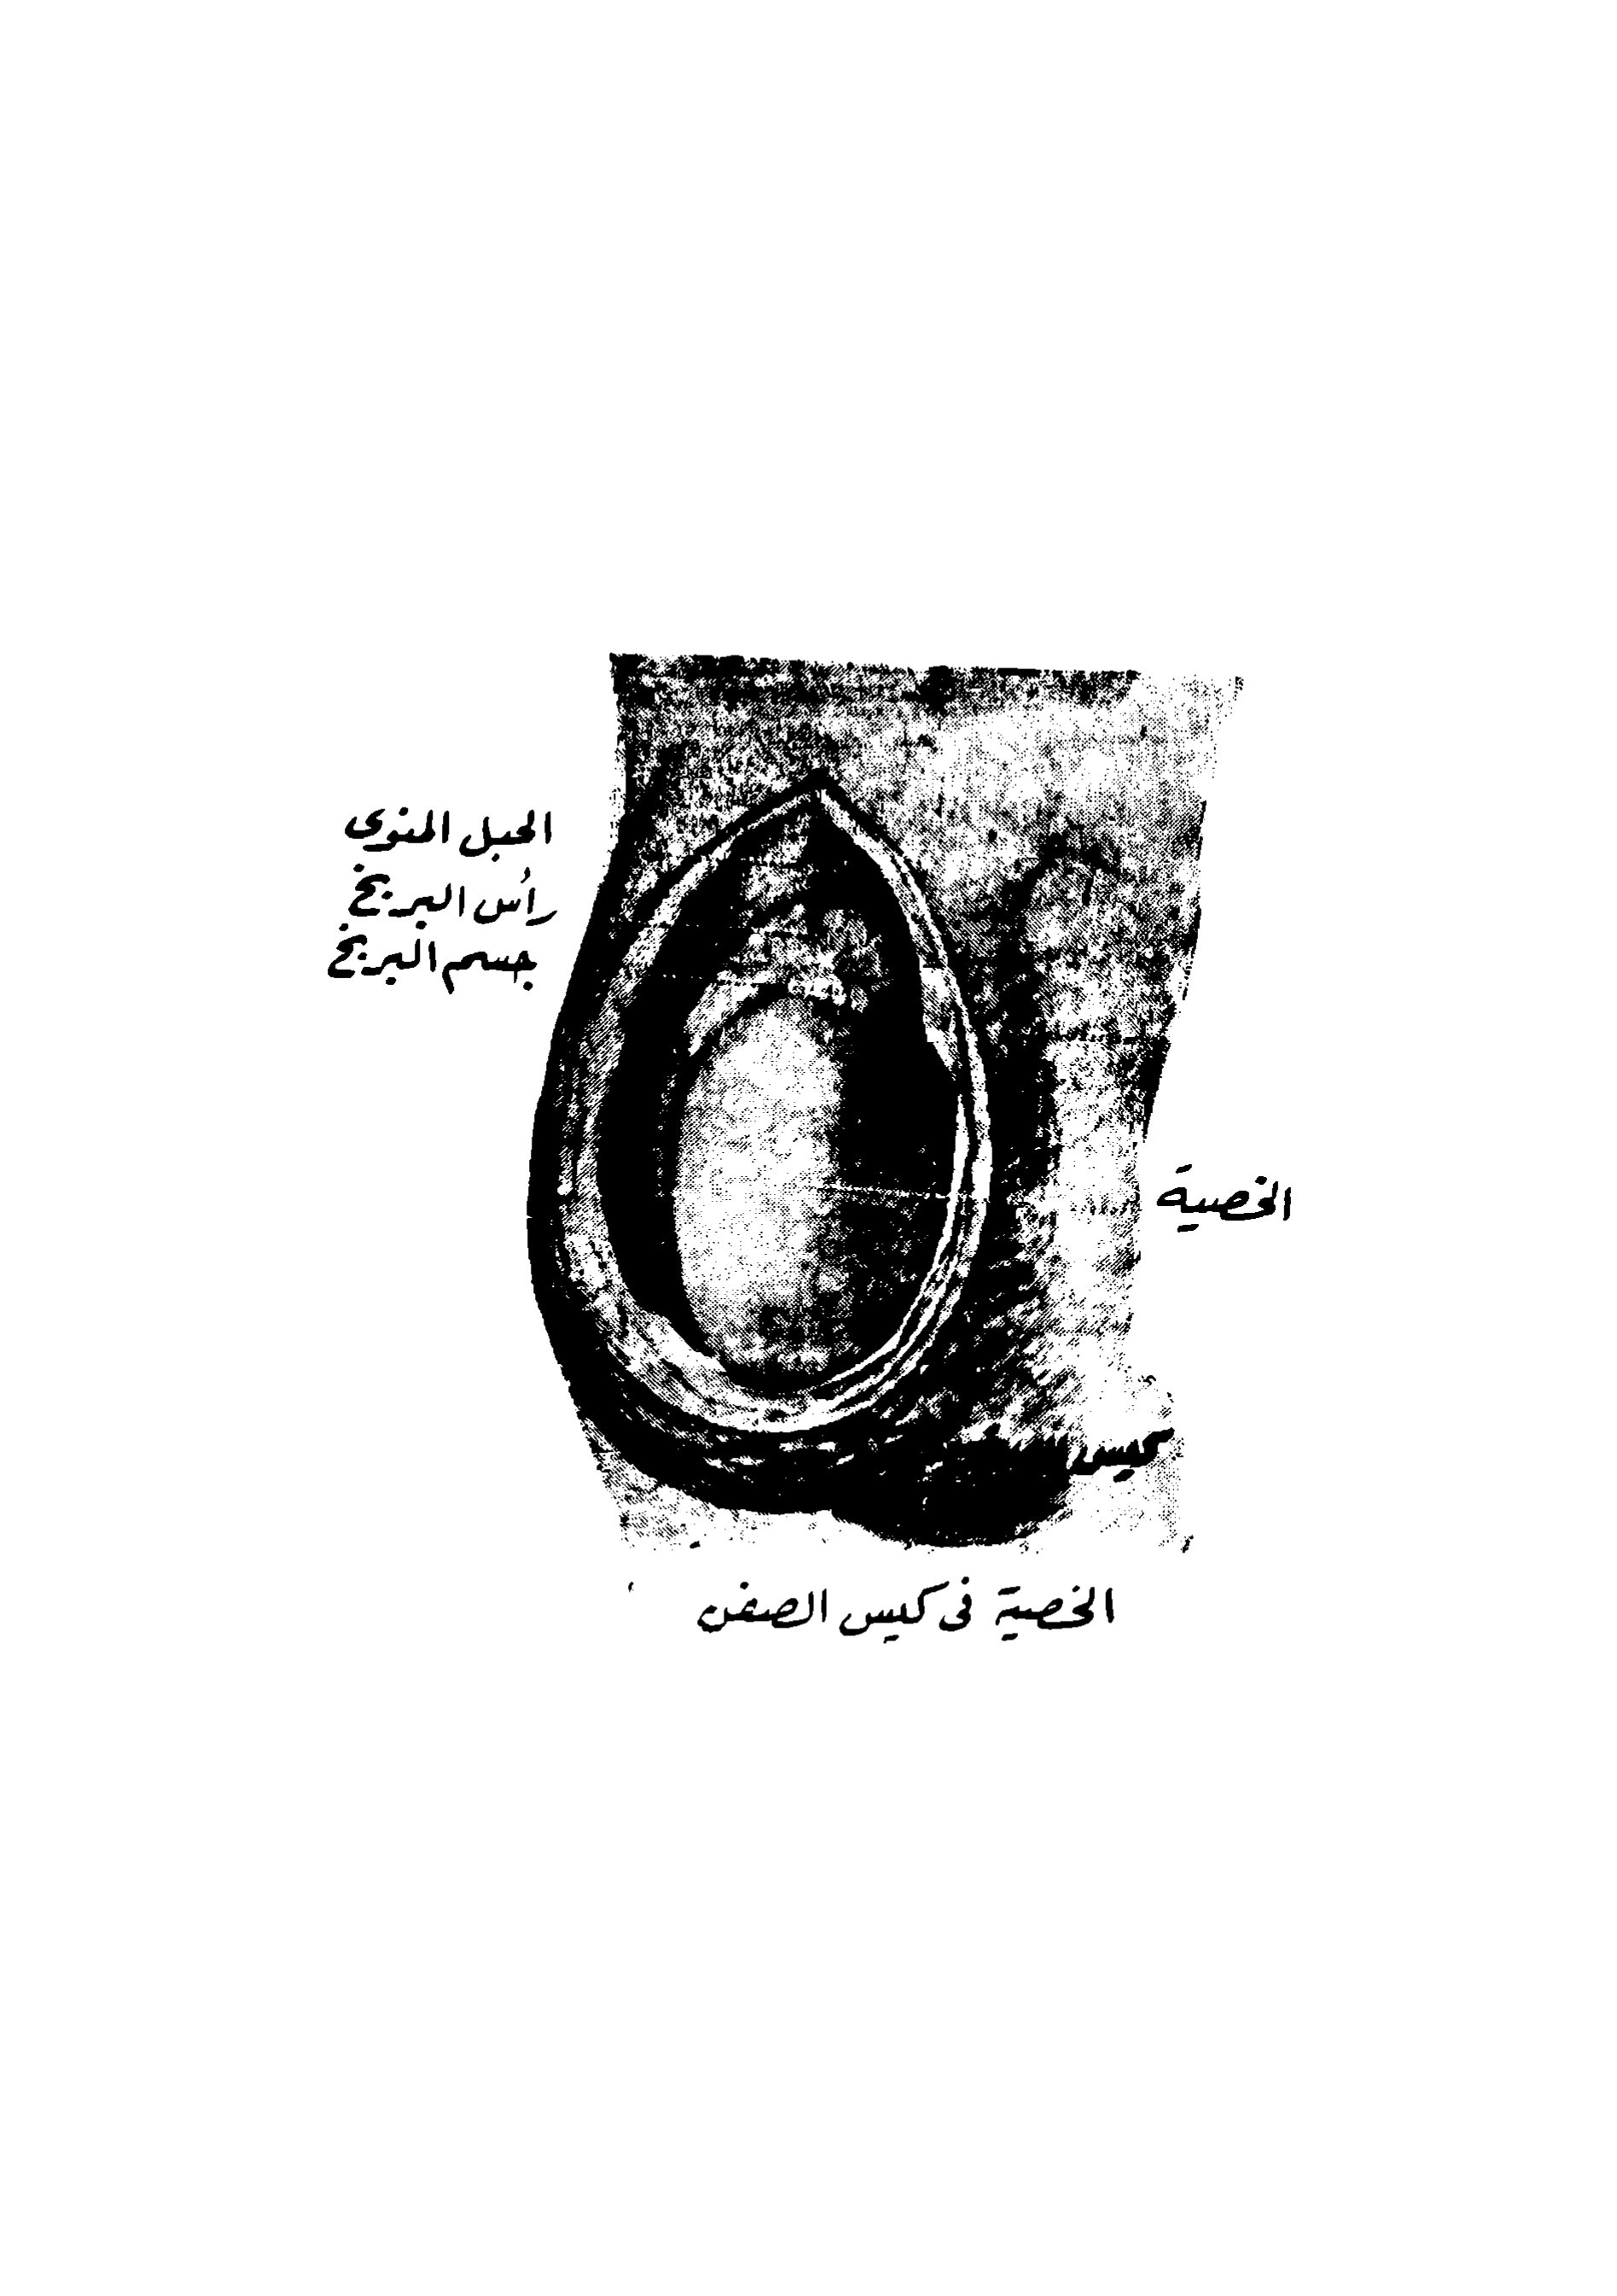 الحبل المنوى
رأس البربخ
جسم البربخ
الخصية
كيس
الخصية فى كيس الصفن